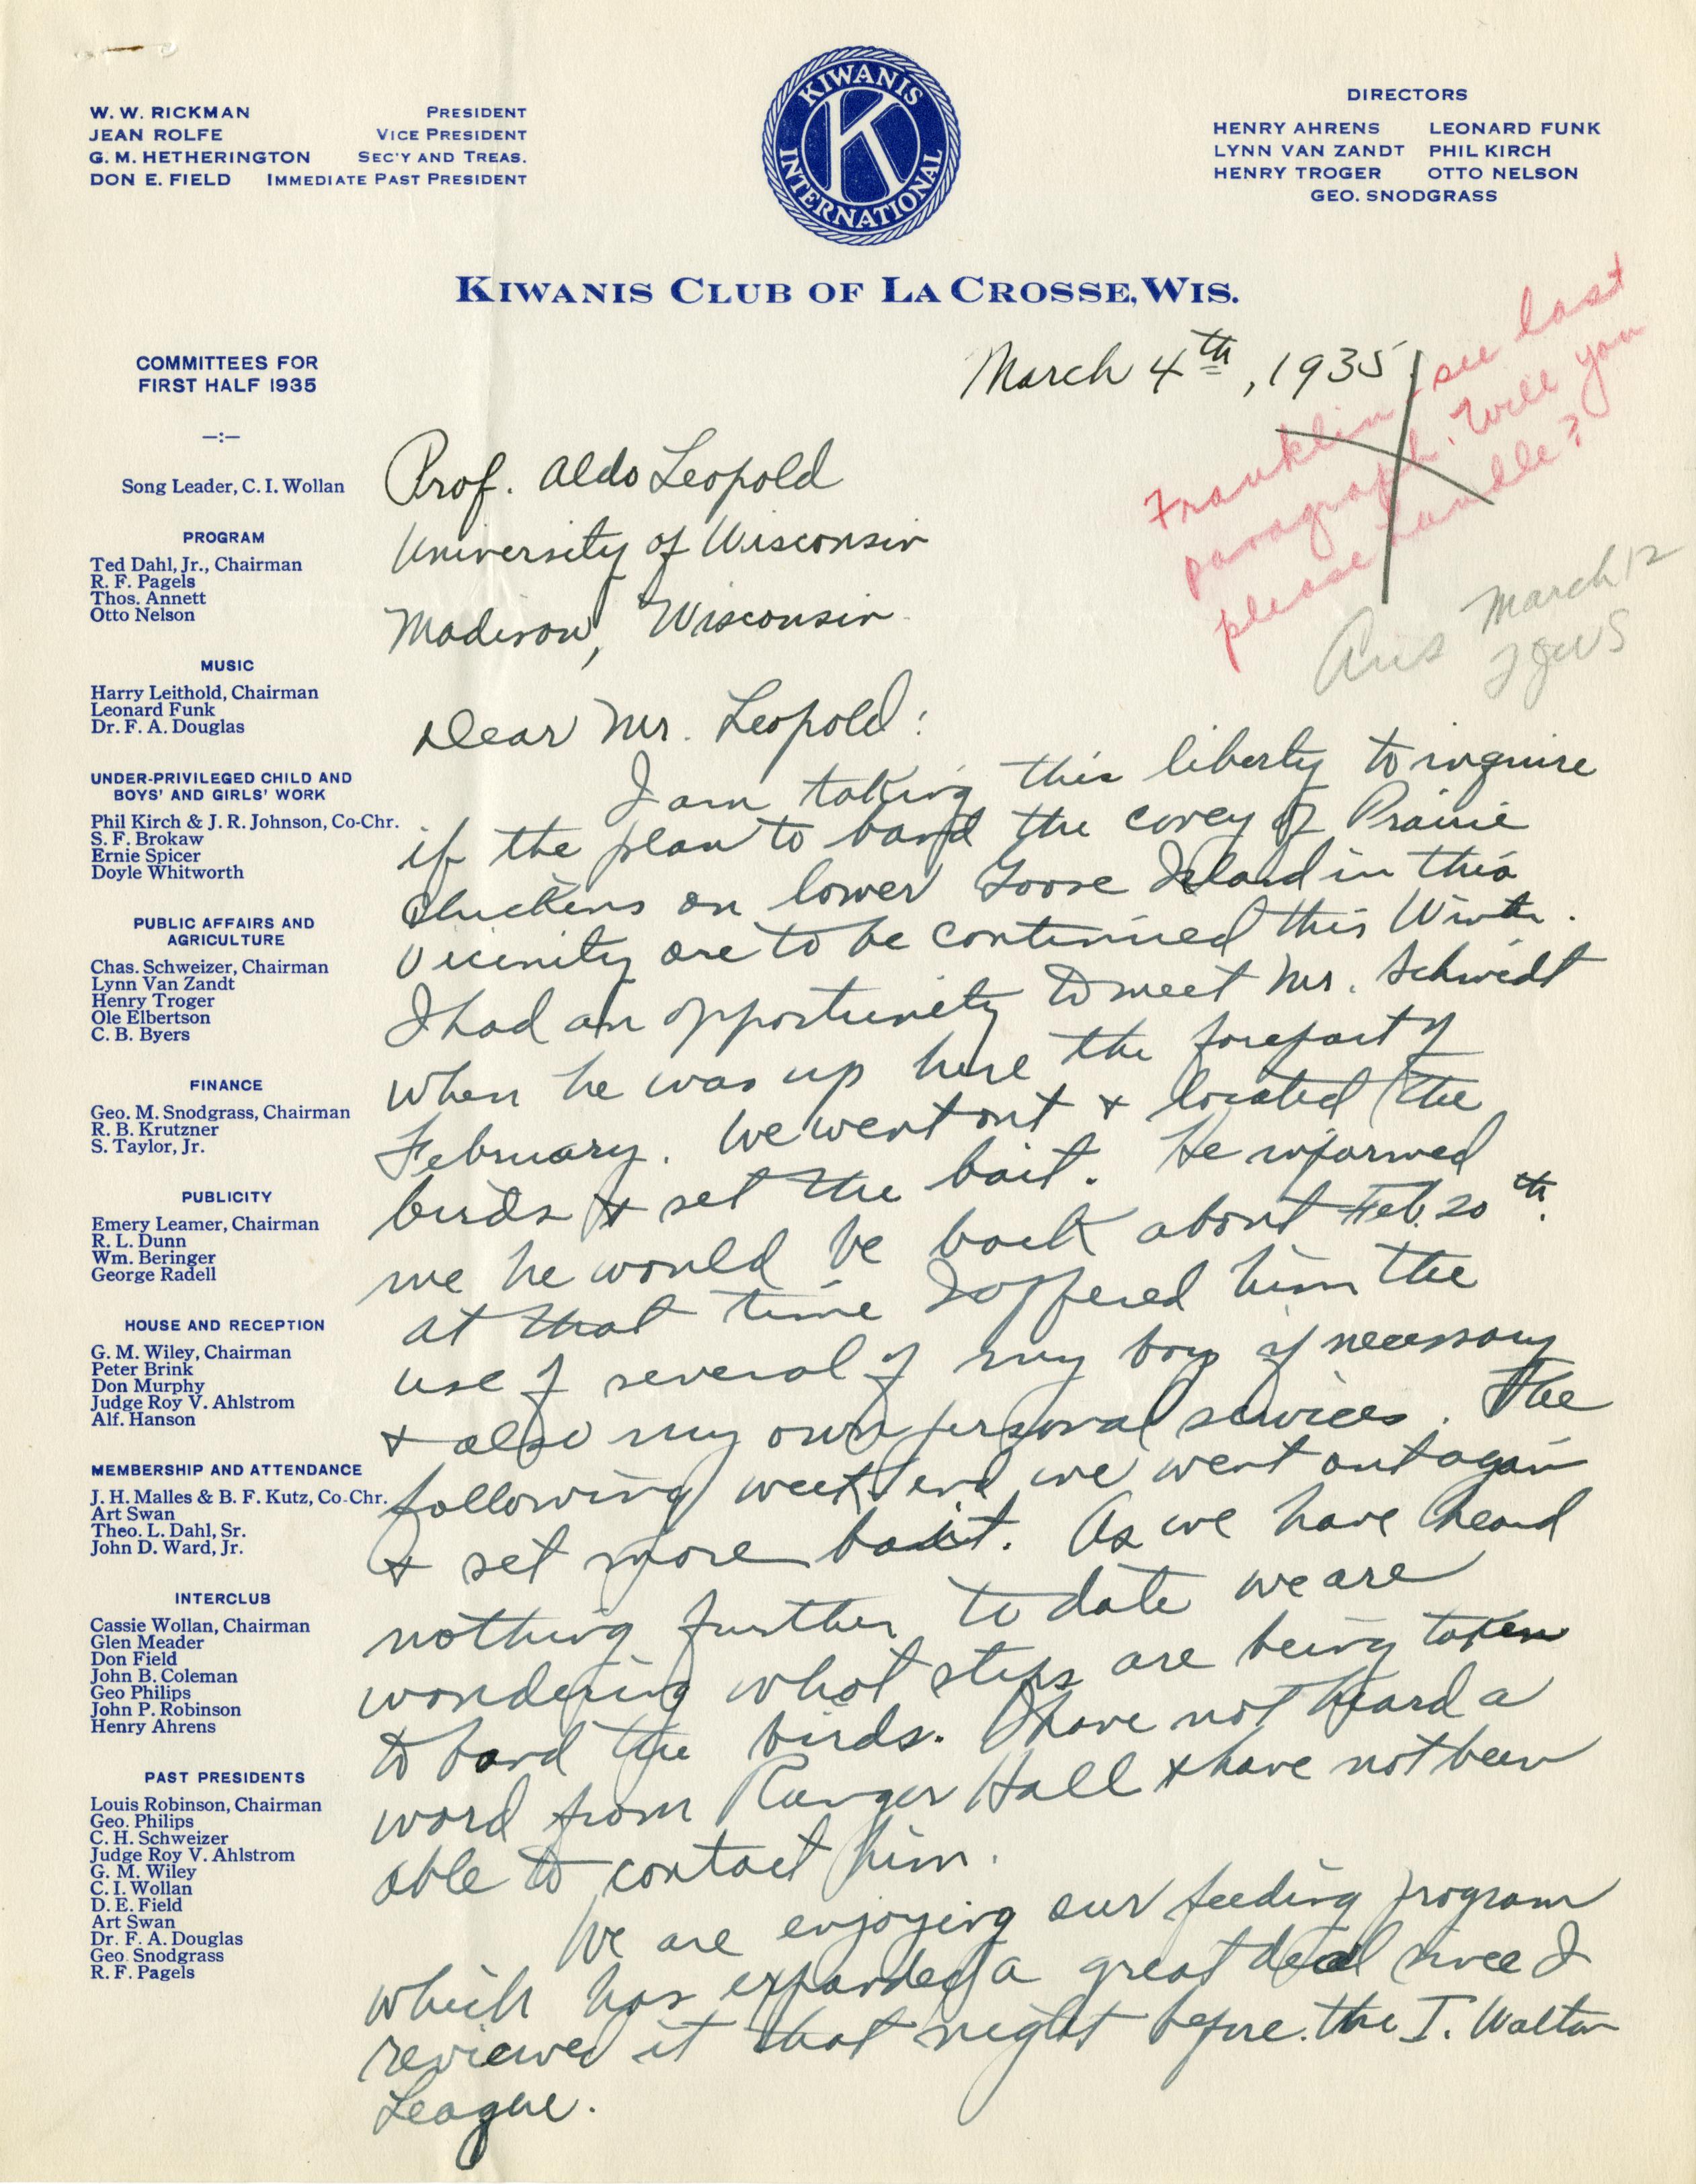 W. W. RICKMAN PRESIDENT
JEAN ROLFE VICE PRESIDENT
G. M. HETHERINGTON SEC'Y AND TREAS.
DON E. FIELD IMMEDIATE PAST PRESIDENT
KIWANIS
K
INTERNATIONAL
DIRECTORS
HENRY AHRENS LEONARD FUNK
LYNN VAN ZANDT PHIL KIRCH
HENRY TROGER OTTO NELSON
GEO. SNODGRASS
KIWANIS CLUB OF LA CROSSE, WIS.
COMMITTEES FOR
FIRST HALF 1935
—:—
Song Leader, C. I. Wollan
PROGRAM
Ted Dahl, Jr., Chairman
R. F. Pagels
Thos. Annett
Otto Nelson
MUSIC
Harry Leithold, Chairman
Leonard Funk
Dr. F. A. Douglas
UNDER-PRIVILEGED CHILD AND
BOYS' AND GIRLS' WORK
Phil Kirch & J. R. Johnson, Co-Chr.
S. F. Brokaw
Ernie Spicer
Doyle Whitworth
PUBLIC AFFAIRS AND
AGRICULTURE
Chas. Schweizer, Chairman
Lynn Van Zandt
Henry Troger
Ole Elbertson
C. B. Byers
FINANCE
Geo. M. Snodgrass, Chairman
R. B. Krutzner
S. Taylor, Jr.
PUBLICITY
Emery Leamer, Chairman
R. L. Dunn
Wm. Beringer
George Radell
HOUSE AND RECEPTION
G. M. Wiley, Chairman
Peter Brink
Don Murphy
Judge Roy V. Ahlstrom
Alf. Hanson
MEMBERSHIP AND ATTENDANCE
J. H. Malles & B. F. Kutz, Co-Chr.
Art Swan
Theo. L. Dahl, Sr.
John D. Ward, Jr.
INTERCLUB
Cassie Wollan, Chairman
Glen Meader
Don Field
John B. Coleman
Geo Philips
John P. Robinson
Henry Ahrens
PAST PRESIDENTS
Louis Robinson, Chairman
Geo. Philips
C. H. Schweizer
Judge Roy V. Ahlstrom
G. M. Wiley
C. I. Wollan
D. E. Field
Art Swan
Dr. F. A. Douglas
Geo. Snodgrass
R. F. Pagels
March 4th, 1935
Franklin, see last
paragraph. Will you
please handle?
Ans March 12
Prof. Aldo Leopold
University of Wisconsin
Madison, Wisconsin
Dear Mr. Leopold:
I am taking this liberty to inquire
if the plan to band the covey of Prairie
Chickens on lower Goose Island in this
vicinity are to be continued this Winter.
I had an opportunity to meet Mr. Schmidt
when he was up here the forepart of
February. We went out & located the
birds & set the bait. He informed
me he would be back about Feb. 20th.
at that time I offered him the
use of several of my boys if necessary
& also my own personal services. The
following week end we went out again
& set more bait. As we have heard
nothing further to date we are
wondering what steps are being taken
to band the birds. I have not heard a
word from Ranger Hall & have not been
able to contact him.
We are enjoying our feeding program
which has expanded a great deal since I
reviewed it that night before the I. Walton
League.